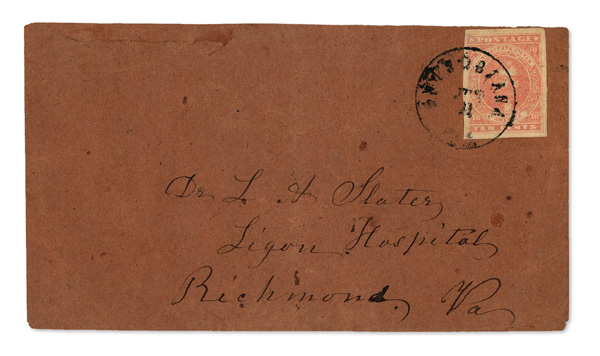 POSTAGE
TEN CENTS
Dr L A Slater
Ligon Hospital
Richmond, Va